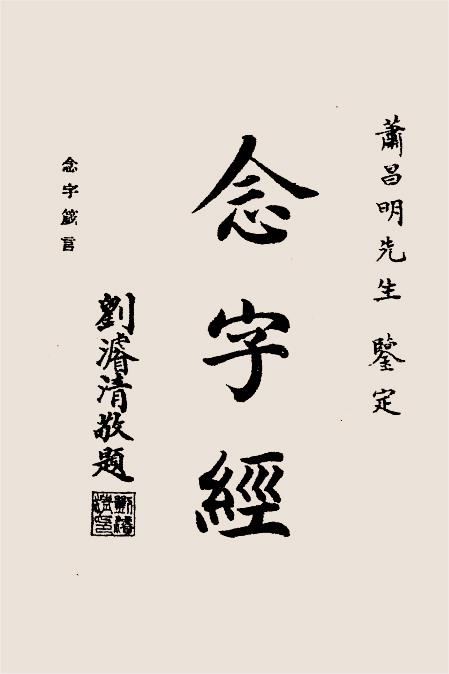 蕭昌明先生 鑒定
念字經
念字箴言
劉濬清敬題